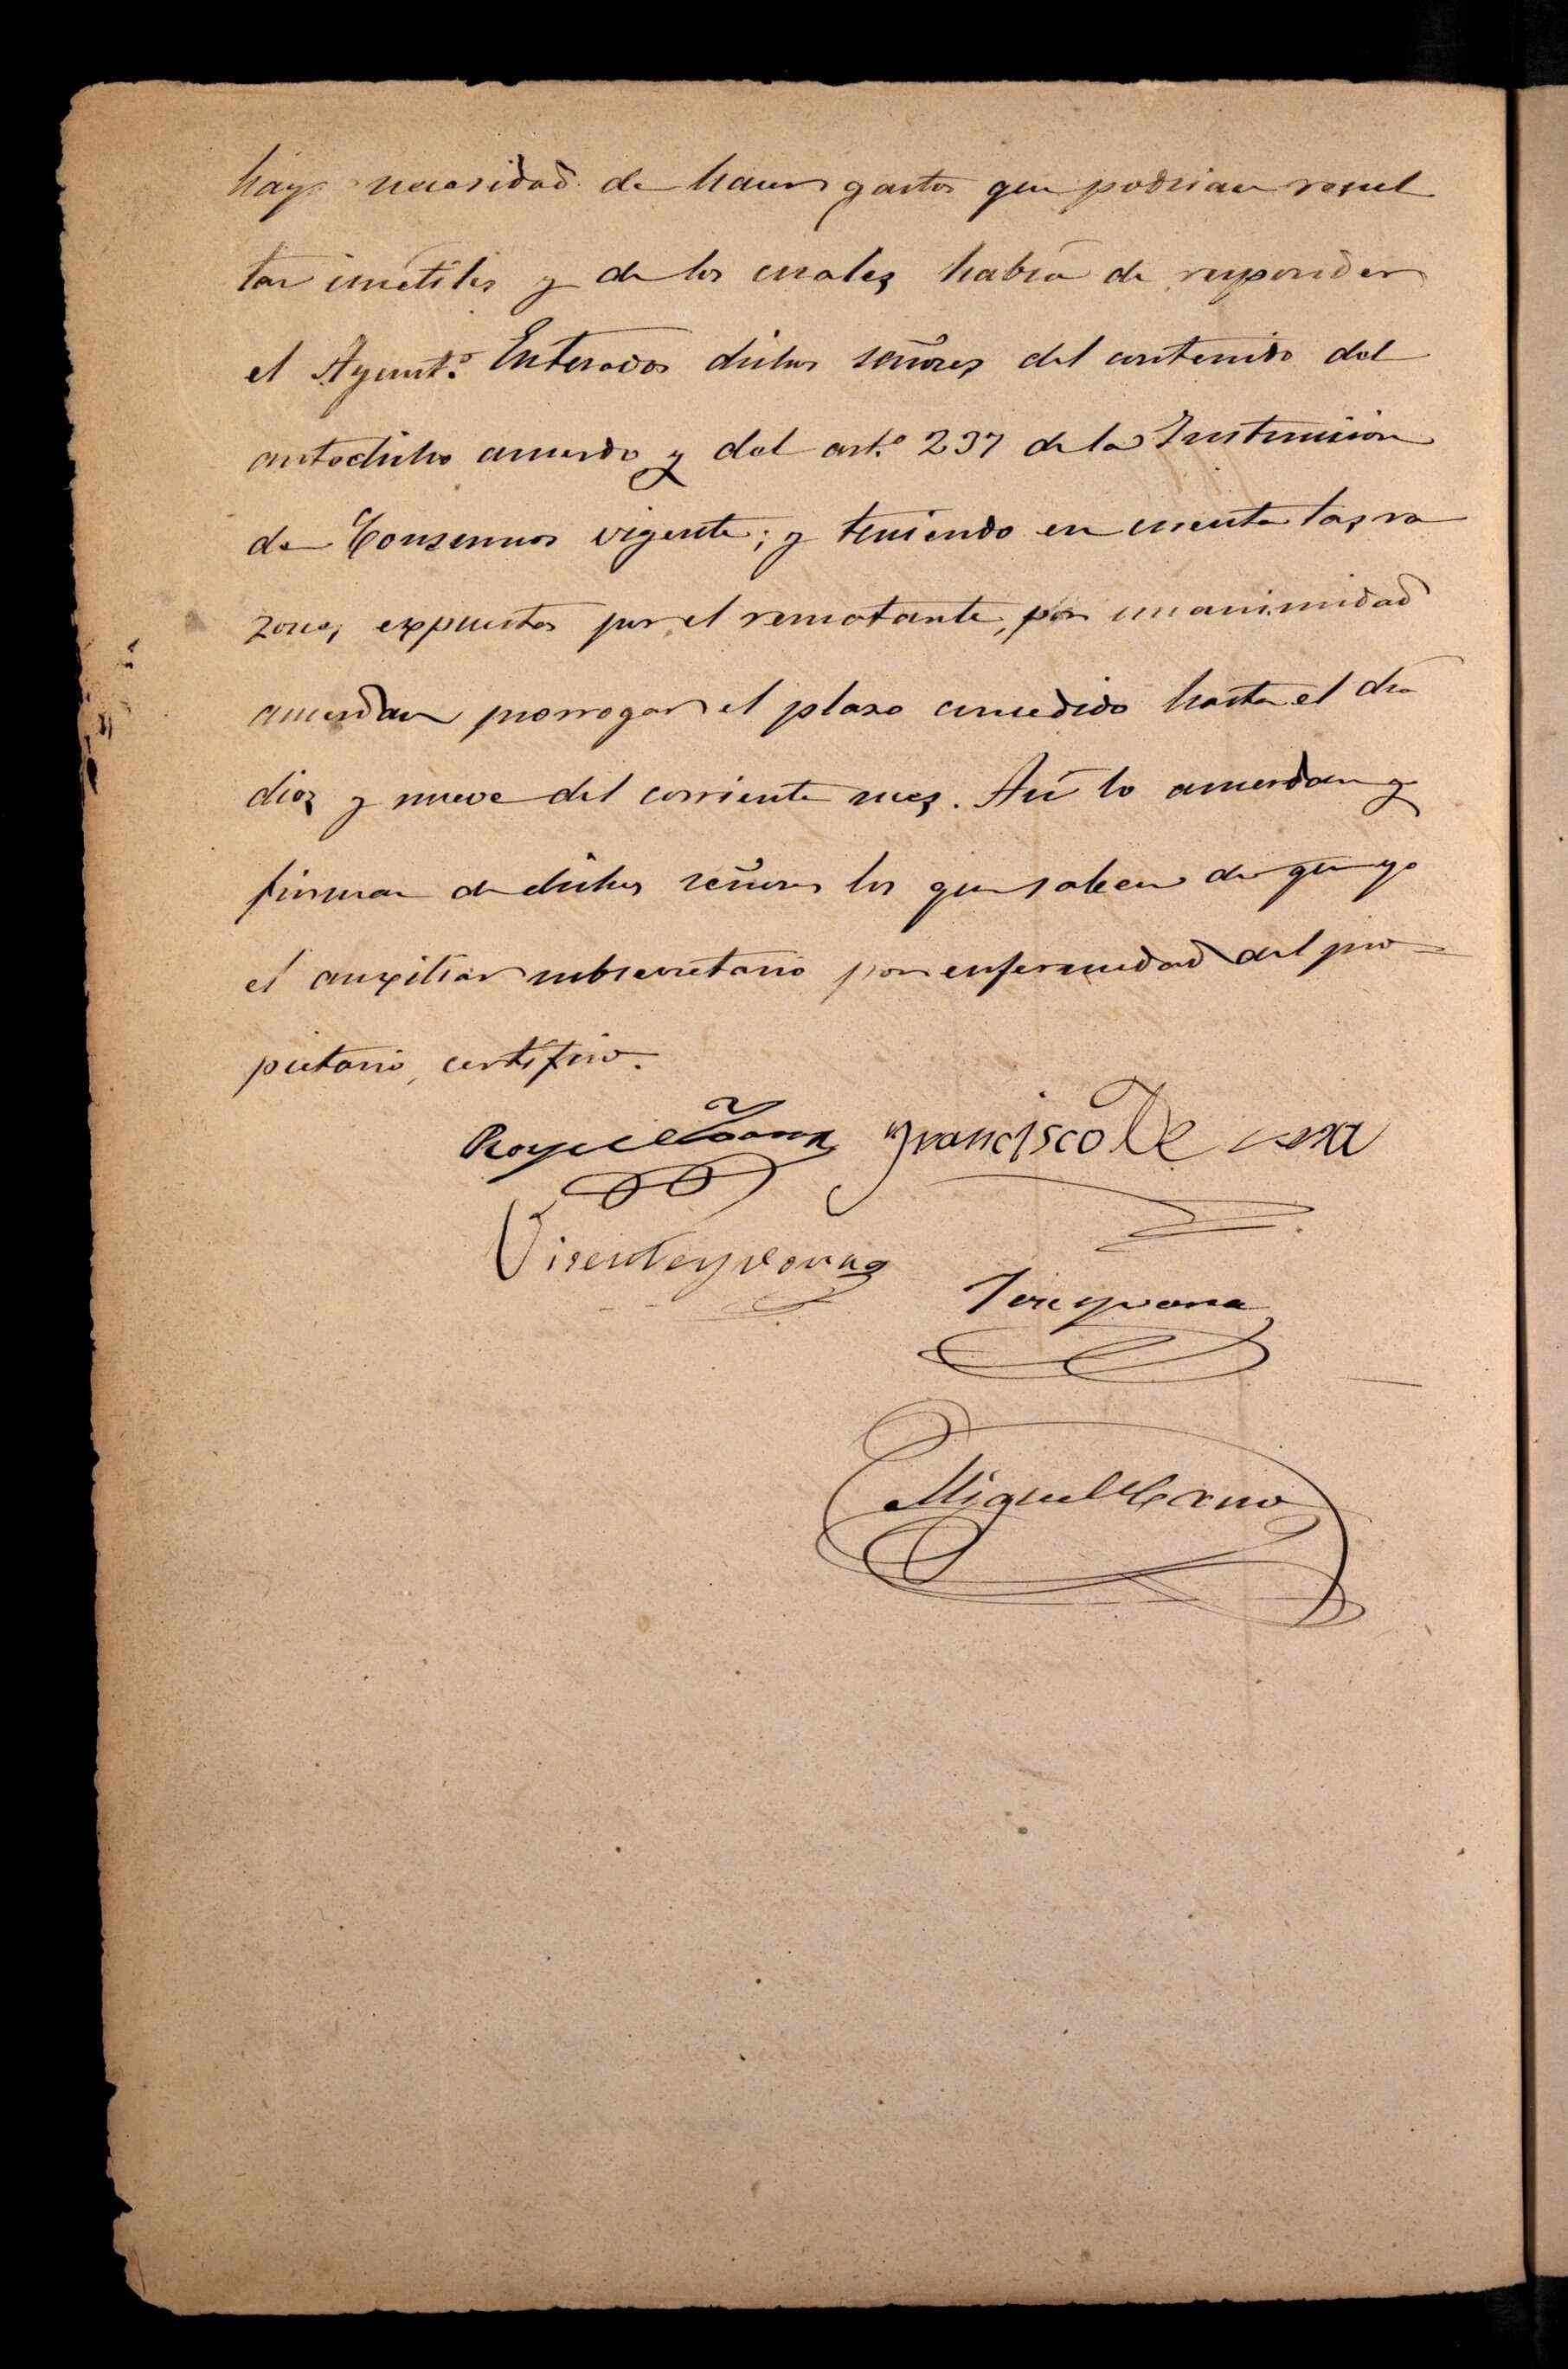 hay necesidad de hacer gastos que podrian resul
tar inutiles y de los cuales habría de responder
el Ayunt.º Enterados dichos señores del contenido del
antedicho acuerdo y del art.º 237 de la Instrucción
de Consumos vigente; y teniendo en cuenta las ra
zones expuestas por el rematante, por unanimidad
acuerdan prorrogar el plazo concedido hasta el dia
diez y nueve del corriente mes. Así lo acuerdan y
firman de dichos señores los que saben de que yo
el auxiliar subsecretario por enfermedad del pro-
pietario, certifico.
Francisco De
Vicente
Miguel